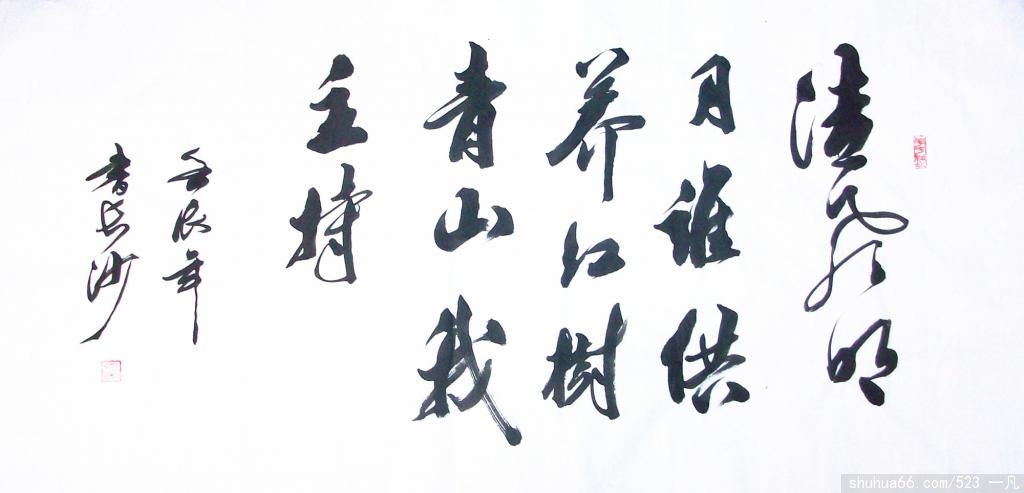 清风明
月谁供
养江樹
青山我
主持
壬辰年
書长沙
shuhua66.com/523 一凡